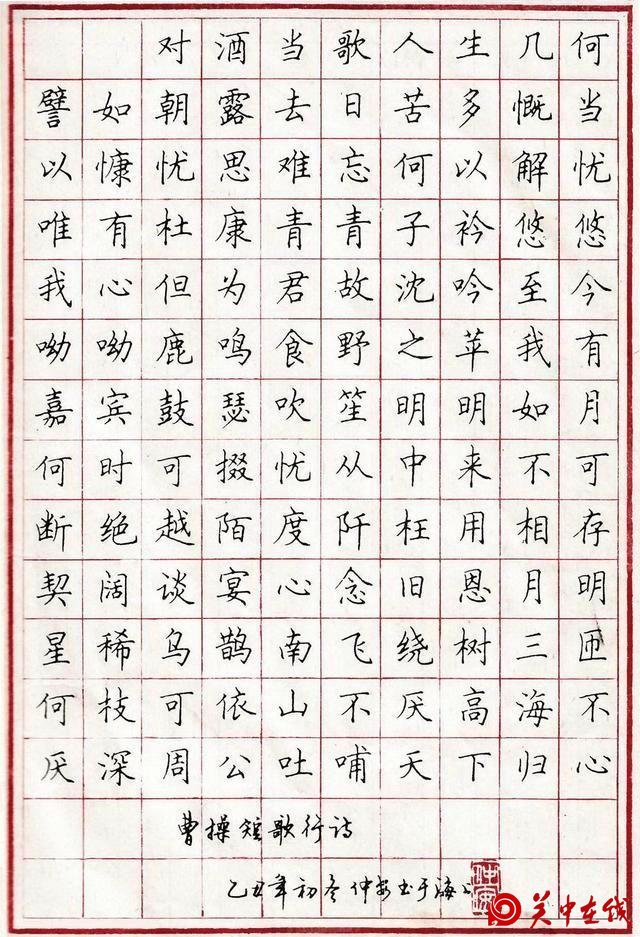 对酒当歌人生几何
譬如朝露去日苦多慨当
以慷忧思难忘何以解忧
唯有杜康青青子衿悠悠
我心但为君故沈吟至今
呦呦鹿鸣食野之苹我有
嘉宾鼓瑟吹笙明明如月
何时可掇忧从中来不可
断绝越陌度阡枉用相存
契阔谈宴心念旧恩月明
星稀乌鹊南飞绕树三匝
何枝可依山不厌高海不
厌深周公吐哺天下归心
曹操短歌行诗
乙丑年初冬仲书于海上
关中在线